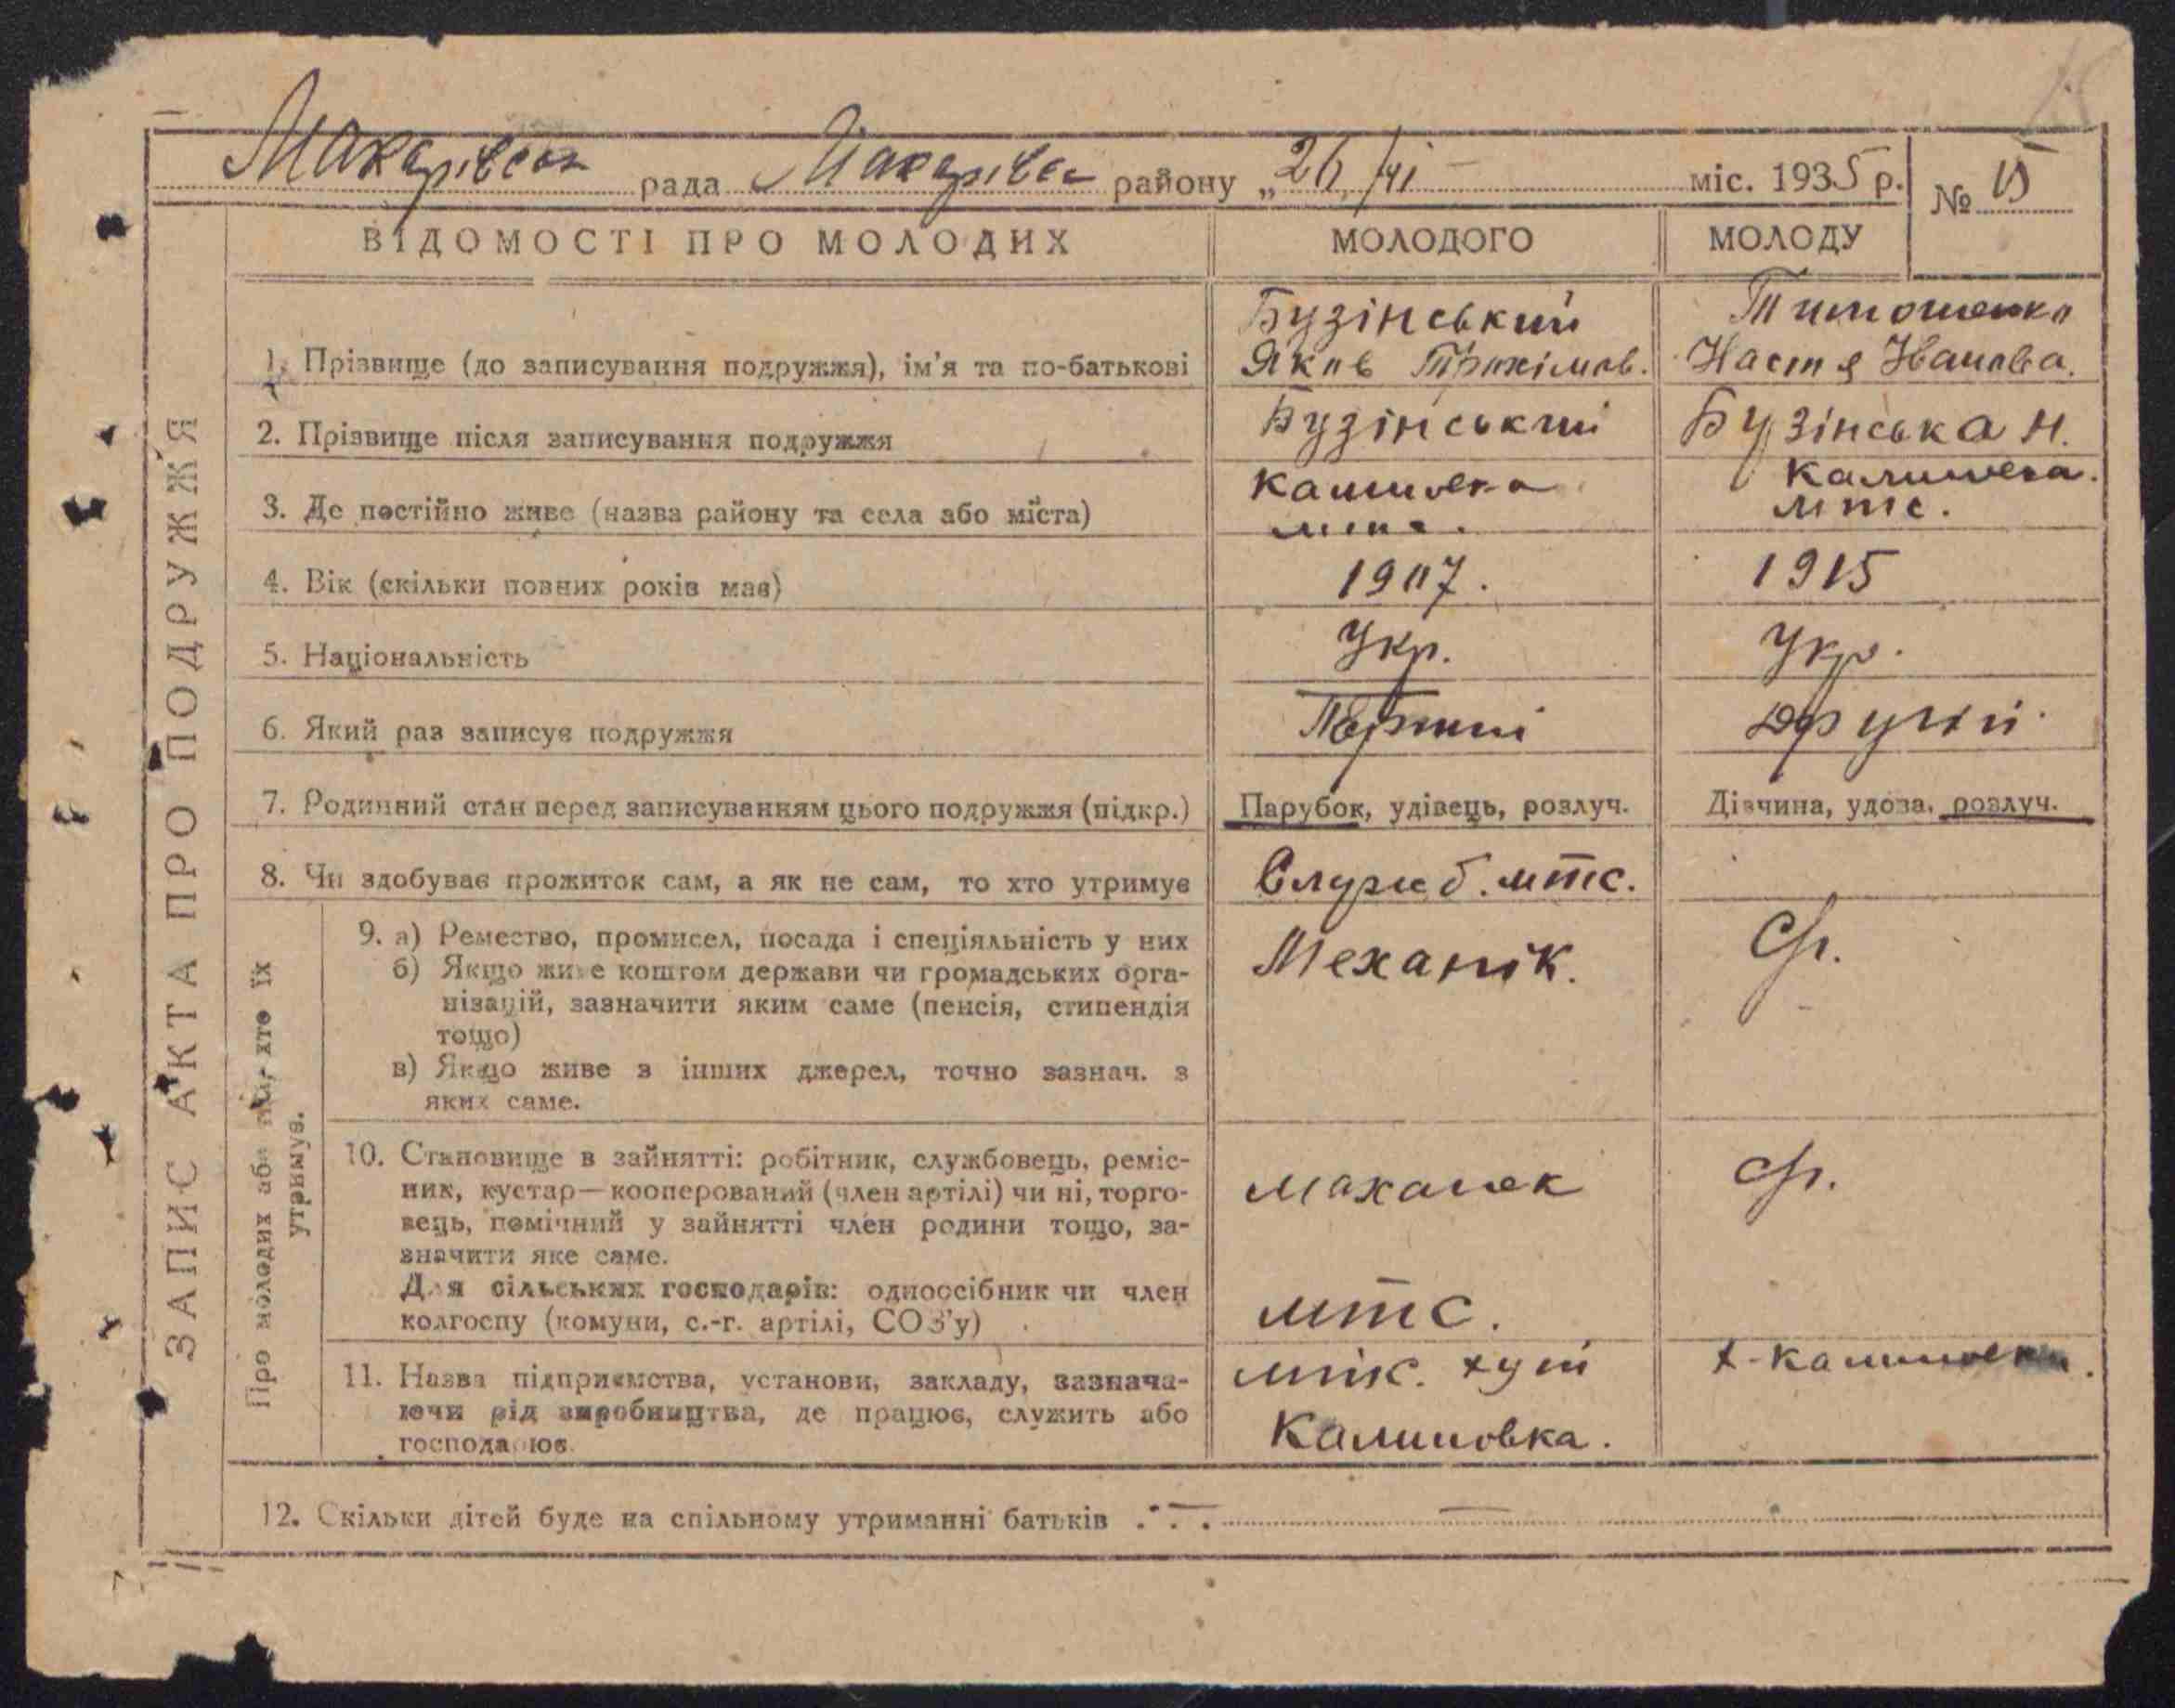 Макарівськ рада Макарівськ району „26 /VI міс. 1935 р.
№ 15
ВІДОМОСТІ ПРО МОЛОДИХ
МОЛОДОГО
МОЛОДУ
ЗАПИС АКТА ПРО ПОДРУЖЖЯ
1. Прізвище (до записування подружжя), ім'я та по-батькові
Бузінський
Яків Трохімов.
Тимошенко
Настя Іванова.
2. Прізвище після записування подружжя
Бузінський
Бузінська Н.
3. Де постійно живе (назва району та села або міста)
Калиновка
мтс.
Калиновка.
мтс.
4. Вік (скільки повних років має)
1907.
1915
5. Національність
Укр.
Укр.
6. Який раз записує подружжя
Перший
Другий
7. Родинний стан перед записуванням цього подружжя (підкр.)
Парубок, удівець, розлуч.
Дівчина, удова, розлуч.
8. Чи здобуває прожиток сам, а як не сам, то хто утримує
Служб. мтс.
Про молодих або тих, хто їх
утримує.
9. а) Ремество, промисел, посада і спеціяльність у них
б) Якщо живе коштом держави чи громадських орга-
нізацій, зазначити яким саме (пенсія, стипендія
тощо)
в) Якщо живе з інших джерел, точно зазнач. з
яких саме.
Механік.
10. Становище в зайнятті: робітник, службовець, реміс-
ник, кустар—кооперований (член артілі) чи ні, торго-
вець, помічний у зайнятті член родини тощо, за-
значити яке саме.
Для сільських господарів: одноосібник чи член
колгоспу (комуни, с.-г. артілі, СОЗ'у)
маханек
мтс.
11. Назва підприємства, установи, закладу, зазнача-
ючи рід виробництва, де працює, служить або
господарює.
хут
Калиновка.
х-Калиновка.
12. Скільки дітей буде на спільному утриманні батьків